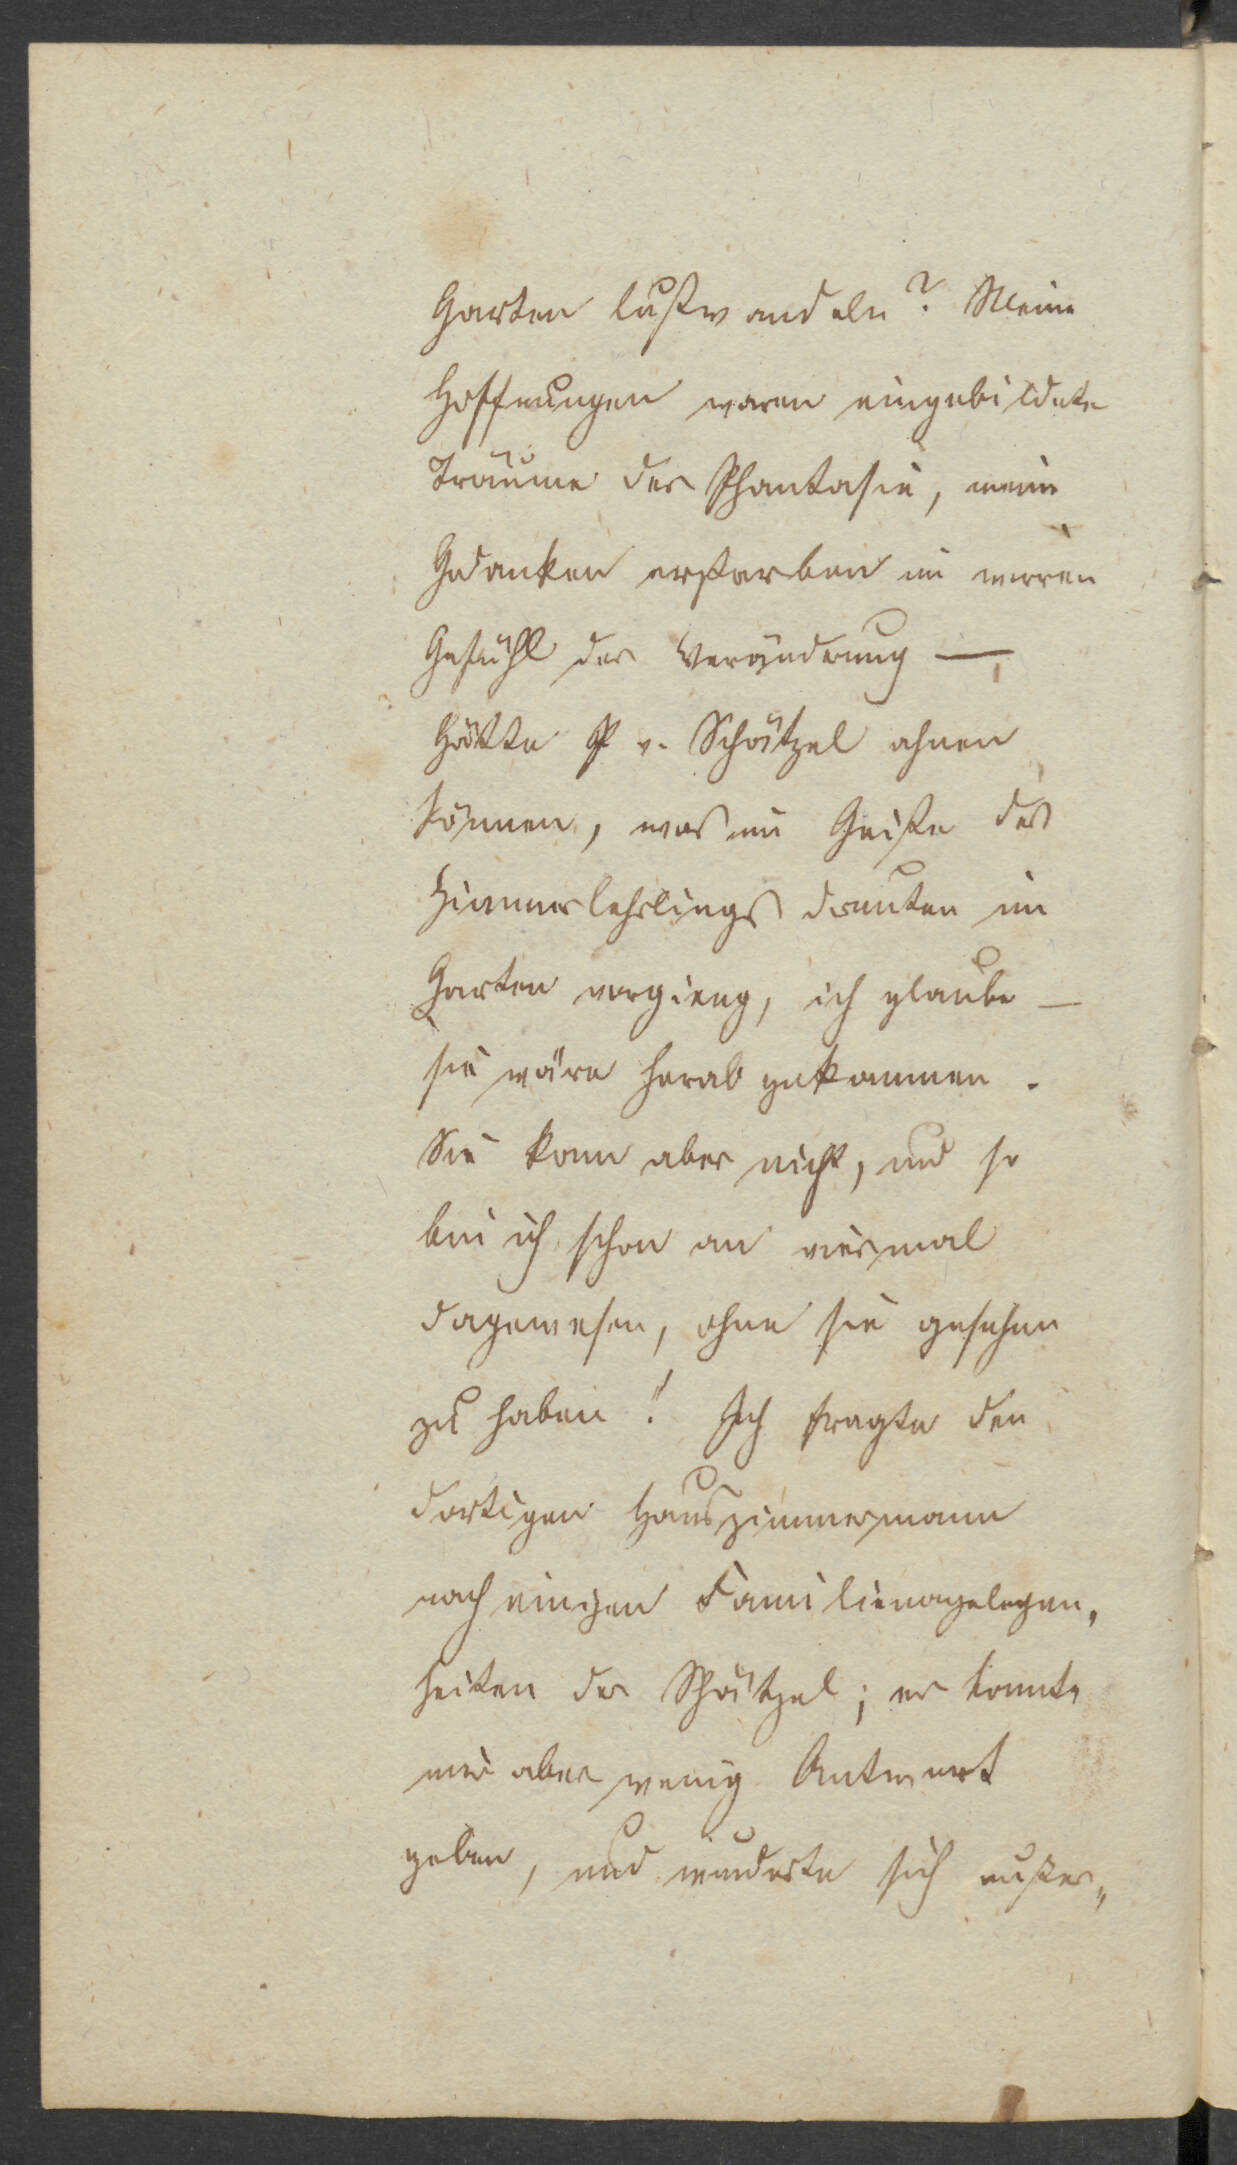 Garten lustwandeln? Meine
Hoffnungen waren eingebildete
Träume der Phantasie, meine
Gedanken erstarben im wirren
Gefühl der Verändrung —
Hätte P v. Schätzel ahnen
können, was im Geiste des
Zimmerlehrlings drunten im
Garten vorgieng, ich glaube —
sie wäre herab gekommen.
Sie kam aber nicht, und so
bin ich schon an viermal
dagewesen, ohne sie gesehen
zu haben! Ich fragte den
dortigen Hauszimmermann
nach einigen Familienagelegen,
heiten der Schätzel; er konnte
mir aber wenig Antwort
geben, und wunderte sich außer„